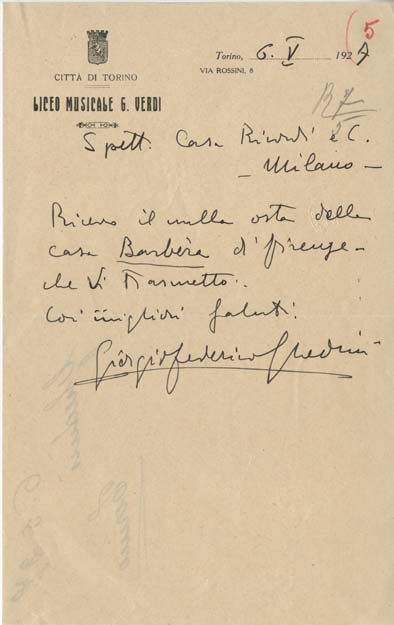 5
Torino, 6. V 1927
VIA ROSSINI, 8
CITTÀ DI TORINO
LICEO MUSICALE G. VERDI
R7
Spett. Casa Ricordi e C.
– Milano –
Ricevo il nulla osta della
casa Barbèra di Firenze –
che Vi trasmetto.
Coi migliori saluti.
Giorgio Federico Ghedini